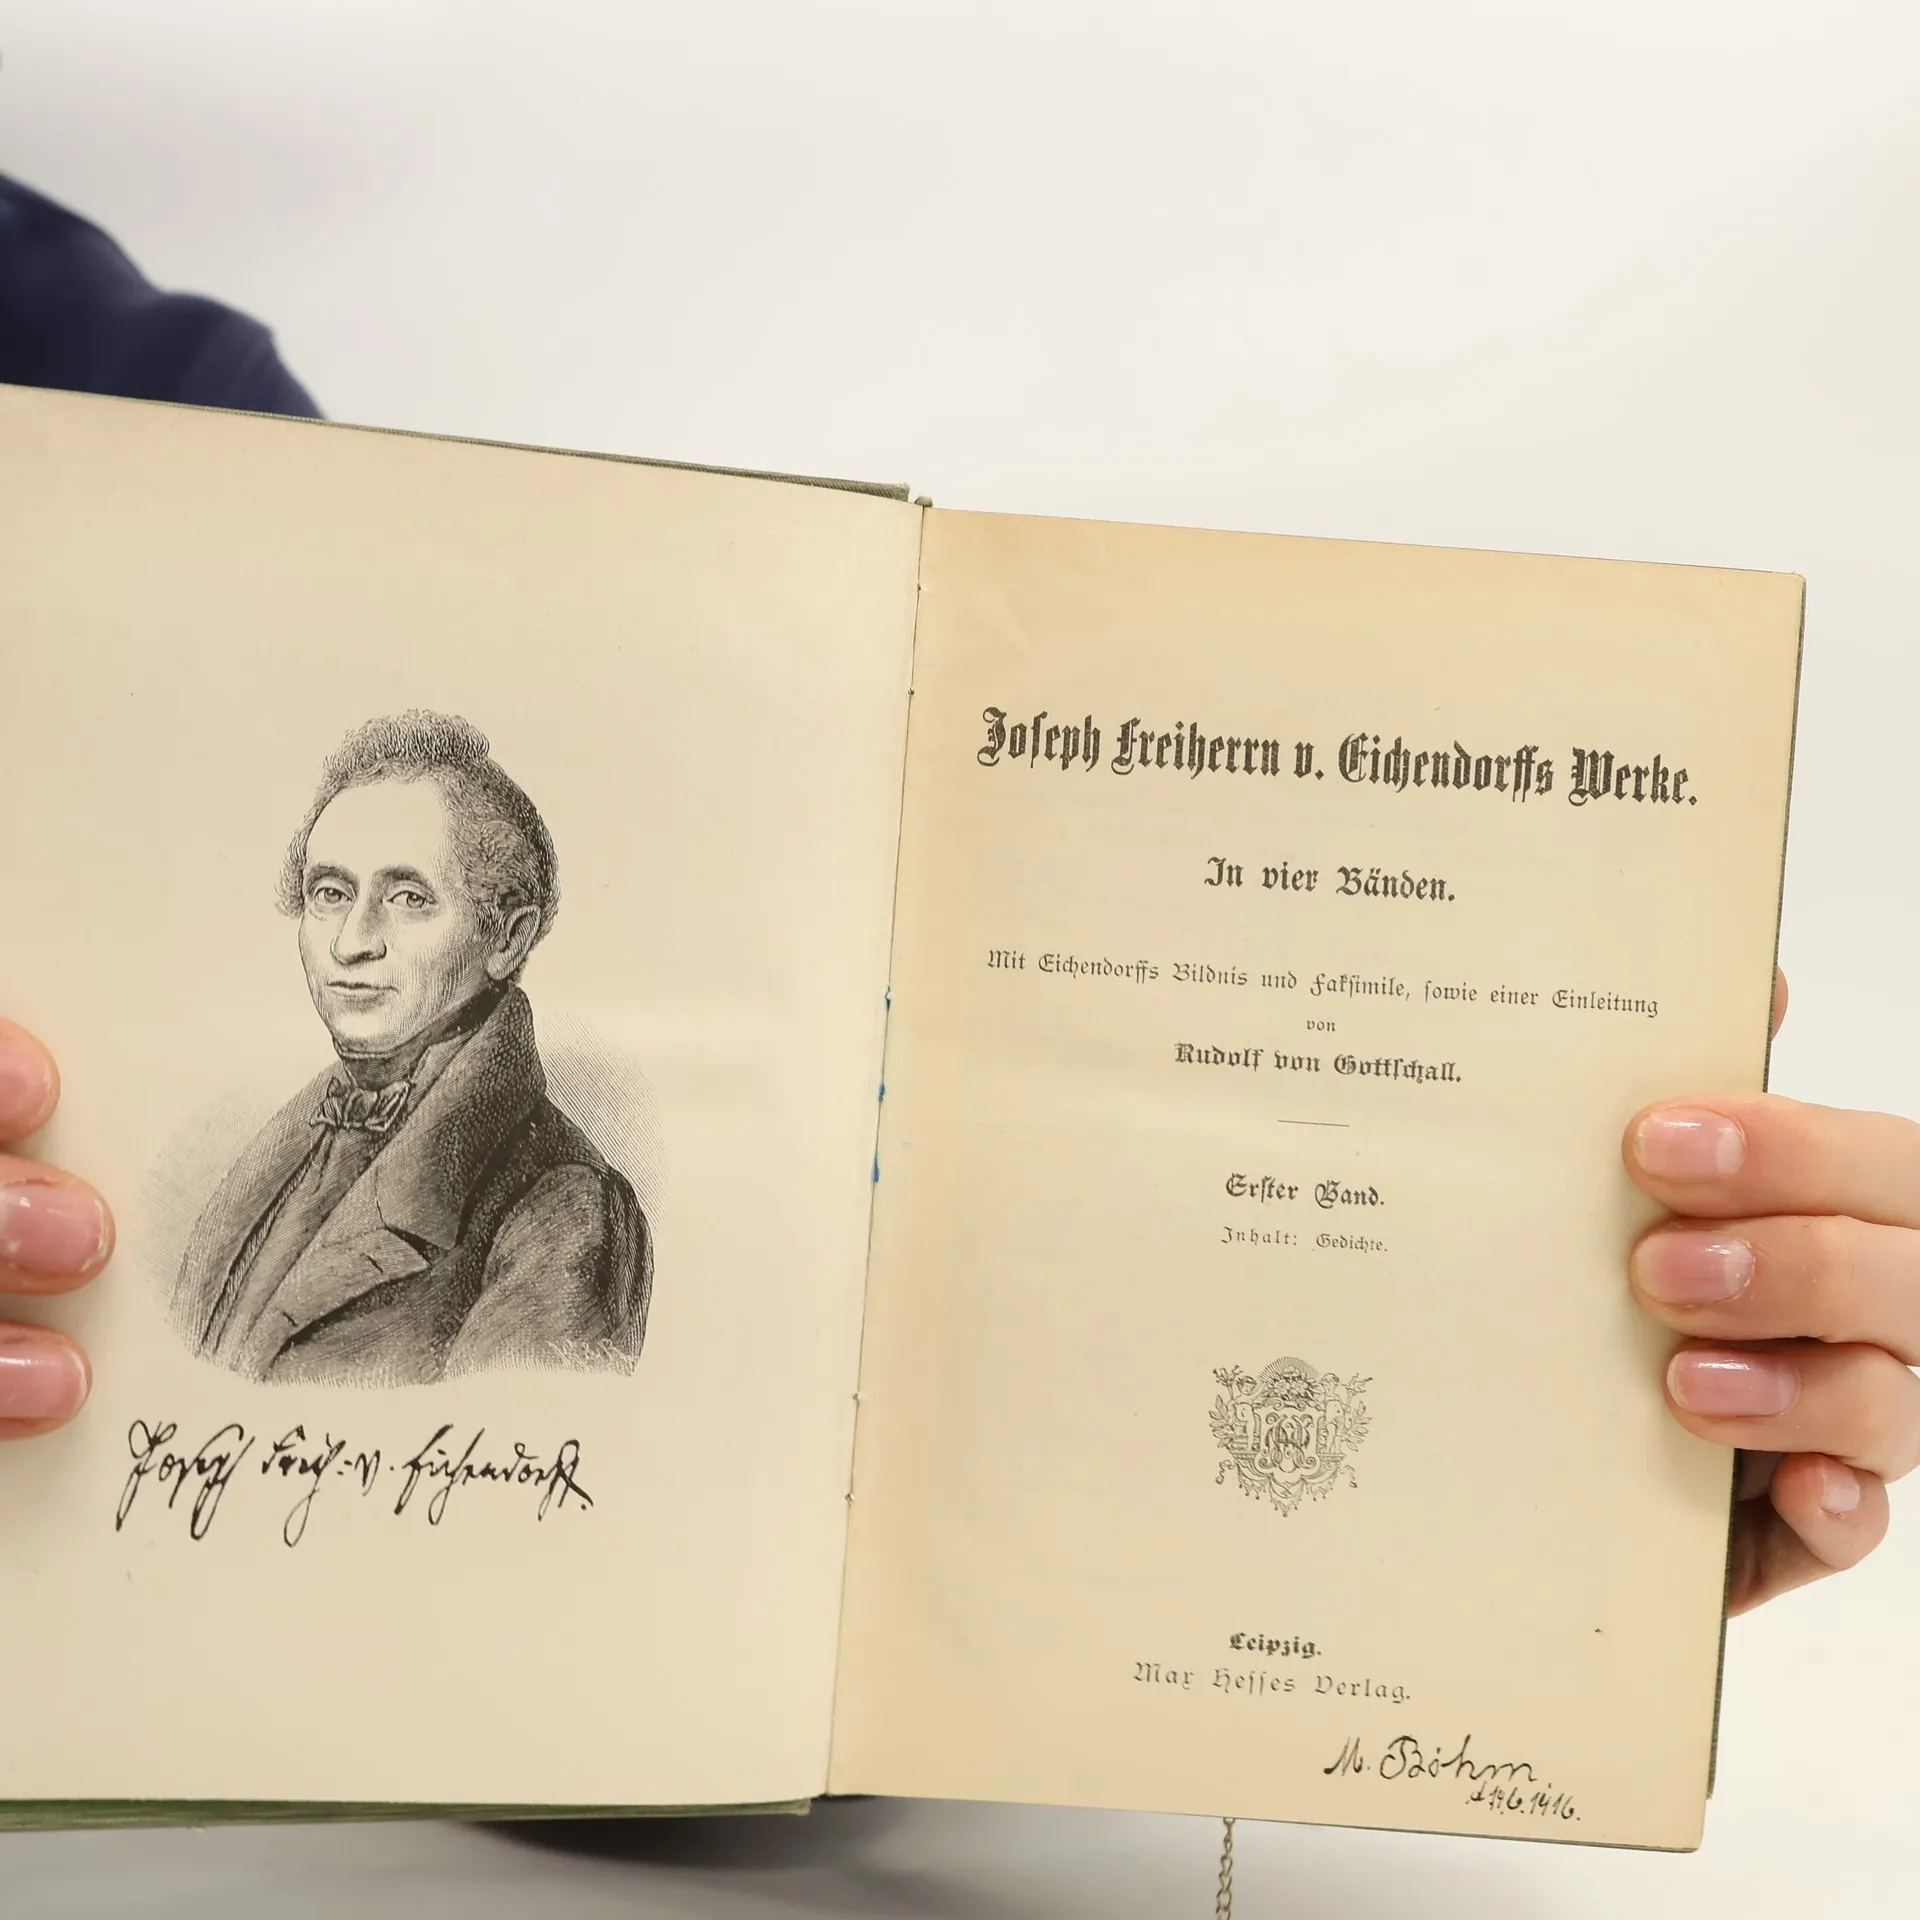 Joseph Freih: v. Eichendorff.
Joseph Freiherrn v. Eichendorffs Werke.
In vier Bänden.
Mit Eichendorffs Bildnis und Fakſimile, ſowie einer Einleitung
von
Rudolf von Gottſchall.
Erſter Band.
Inhalt: Gedichte.
Leipzig.
Max Heſſes Verlag.
M. Böhm